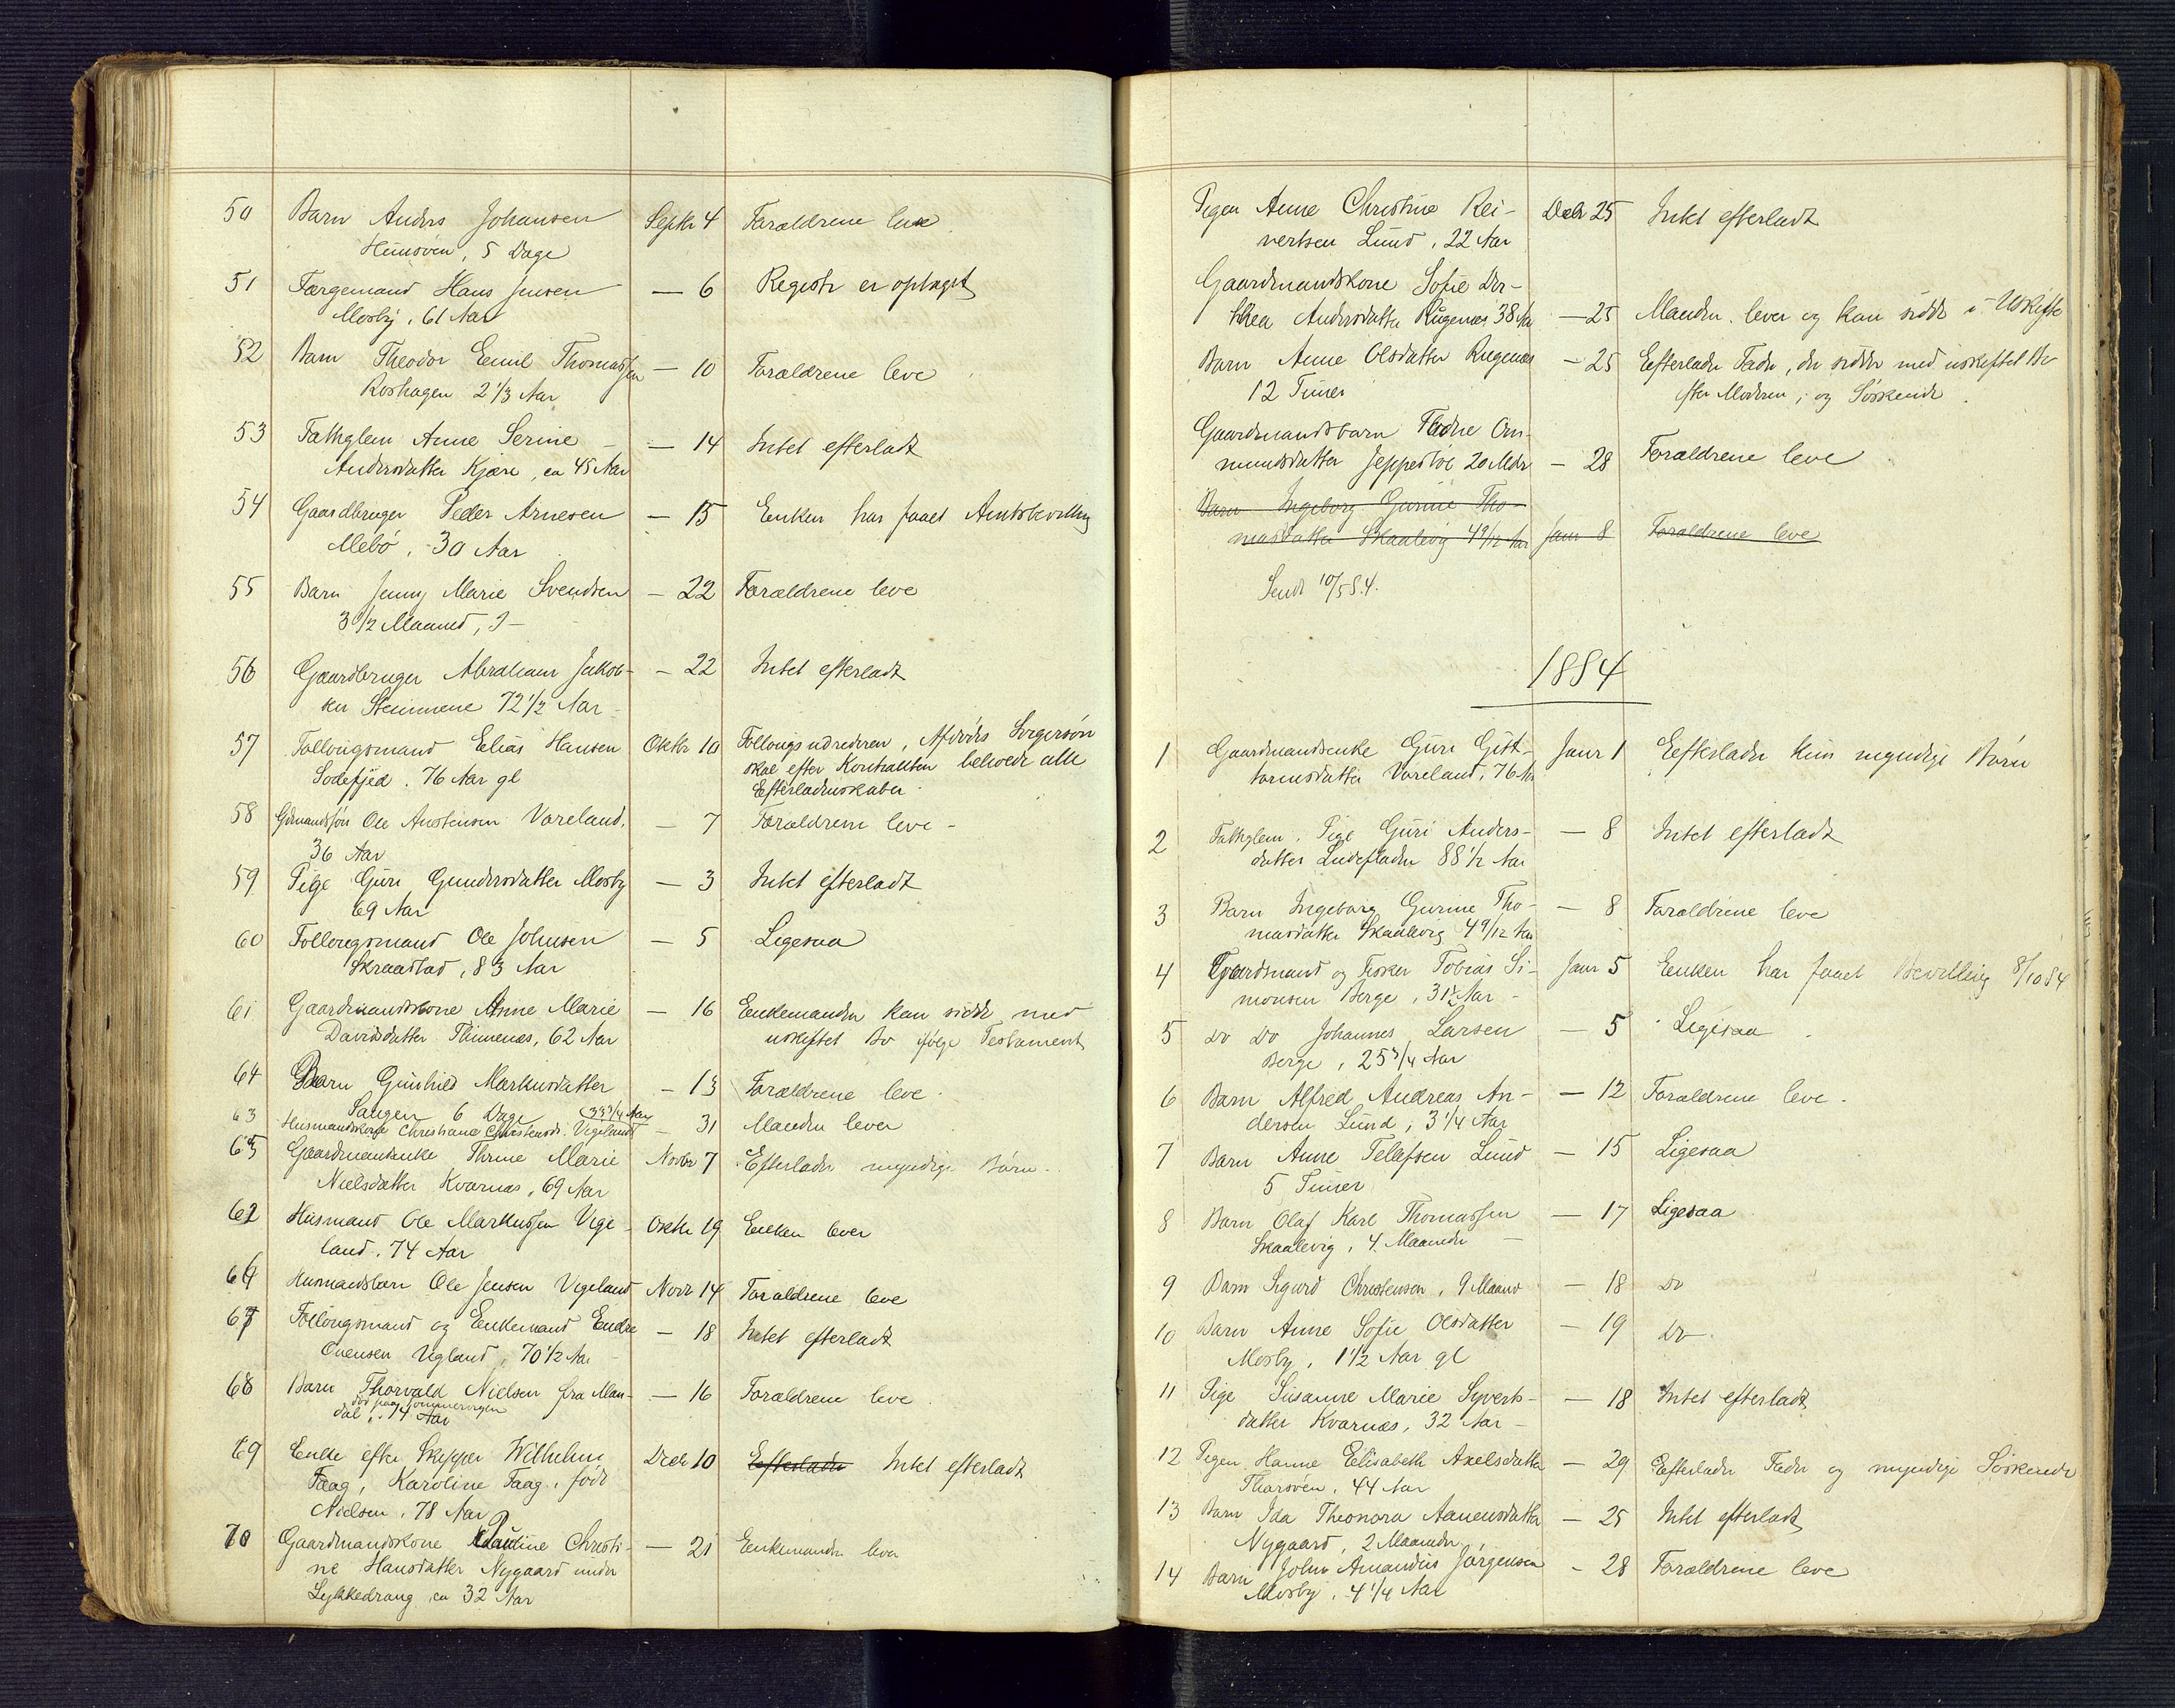 50 Barn Anders Johansen Septr 4 Forældrene leve
5 Dage
51 Færgemand Hans Jensen — 6 Registr er optaget
Mosby, 61 Aar
52 Barn Theodor Emil Thomassen — 10 Forældrene leve
Roshagen 2 1/3 Aar
53 Fatteglem Anne Serine — 14 Intet efterladt
Andersdatter Kjære, ca 45 Aar
54 Gaardbruger Peder Arnesen — 15 Enken har faaet Amtsbevilling
Mebö, 30 Aar
55 Barn Jenny Marie Svendsen — 22 Forældrene leve
3 1/2 Maaned
56 Gaardbruger Abraham Jakob- — 22 Intet efterladt
sen Stemmene 72 1/2 Aar
57 Follougsmand Elias Hansen Oktbr 10 Follougs udrederen, Afdødes Svigersön
Sodefjed. 76 Aar gl skal efter Kontrakten beholde alle
Efterladenskaber
58 Gdmandssön Ole Austensen Vareland, — 7 Forældrene leve -
36 Aar
59 Pige Guri Gundersdatter Mosby — 3 Intet efterladt
69 Aar
60 Follougsmand Ole Johnsen — 5 Ligesaa
Skraastad, 83 Aar
61 Gaardmandskone Anne Marie — 16 Enkemanden kan sidde med
Davidsdatter Thinnenæs, 62 Aar uskiftet Bo ifölge Testament
64 Barn Gunhild Markusdatter — 13 Forældrene leve.
Sangen 6 Dage 33 3/4 Aar
63 Husmandskone Christiane Christensdr. Vigeland — 31 Manden lever
65 Gaardmandsenke Thrine Marie Novbr 7 Efterlader myndige Börn.
Nielsdatter Kvarnæs, 69 Aar
62 Husmand Ole Markussen Vige- Oktbr 19 Enken lever
land. 74 Aar
66 Husmandsbarn Ole Jensen Vigeland Novr 14 Forældrene leve
67 Follougsmand og Enkemand Endre — 18 Intet efterladt
Ouensen Vigland, 70 1/2 Aar
68 Barn Thorvald Nielsen fra Man- — 16 Forældrene leve.
död paa
dal, 14 Aar
69 Enke efter Skipper Wilhelm Decbr 10 Efterlader Intet efterladt
Faag, Karoline Faag, födt
Nielsen, 78 Aar
70 Gaardmandskone Pauline Christi- — 21 Enkemanden lever
ne Hansdatter Nygaard under
Lykkedrang ca 32 Aar
Pigen Anne Christine Rei- Decbr 25 Intet efterladt
nertsen Lund, 22 Aar
Gaardmandskone Sofie Do-
rthea Andersdatter Rugenæs 38 Aar — 25 Manden lever og kan sidde i Uskifte
Barn Anne Olsdatter Rugenæs — 25 Efterlader Fader, der sidder med uskiftet Bo
12 Timer efter Moderen, og Söskende.
Gaardmandsbarn Thedne Om-
mundsdatter Jeppestöl 20 Mdr — 28 Forældrene leve
Barn Ingeborg Gurine Tho-
masdatter Skaalevig 4 9/12 Aar Janr 8 Forældrene leve
Sendt 10/5 84.
1884
1 Gaardmandsenke Guri Gutt- Janr 1 Efterlader kun myndige Börn
tormsdatter Vareland, 76 Aar
2 Fatteglem. Pige Guri Anders- — 8 Intet efterladt
datter Lindefladen 88 1/2 Aar
3 Barn Ingeborg Gurine Tho- — 8 Forældrene leve
masdatter Skaalevig 4 9/12 Aar
4 Gaardmand og Fisker Tobias Si- Janr 5 Enken har faaet Bevilling 8/10 84
monsen Berge, 31 1/2 Aar -
5 Do Do Johannes Larsen — 5 Ligesaa
Berge, 25 3/4 Aar
6 Barn Alfred Andreas An- — 12 Forældrene leve.
dersen Lund, 3 1/4 Aar
7 Barn Anne Telefsen Lund — 15 Ligesaa
5 Timer
8 Barn Olaf Karl Thomassen — 17 Ligesaa
Skaalevig, 4 Maaneder
9 Barn Sigurd Christensen, 9 Maand — 18 Do
10 Barn Anne Sofie Olsdatter — 19 Do
Mosby, 1 1/2 Aar gl
11 Pige Susanne Marie Syverts- — 18 Intet efterladt
datter Kvarnæs, 32 Aar -
12 Pigen Hanne Elisabeth Axelsdatter — 29 Efterlader Fader og myndige Söskende
Tharöven, 44 Aar
13 Barn Ida Theonora Aanensdatter — 25 Intet efterladt
Nygaard, 2 Maaneder
14 Barn John Amandus Jörgensen - 28 Forældrene leve
Mosby, 4 1/4 Aar